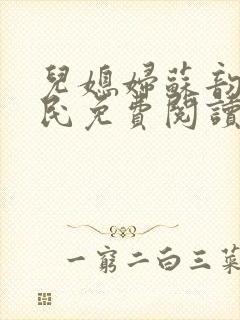 兒媳婦蘇韵
民免費閱讀
一窮二白三菜